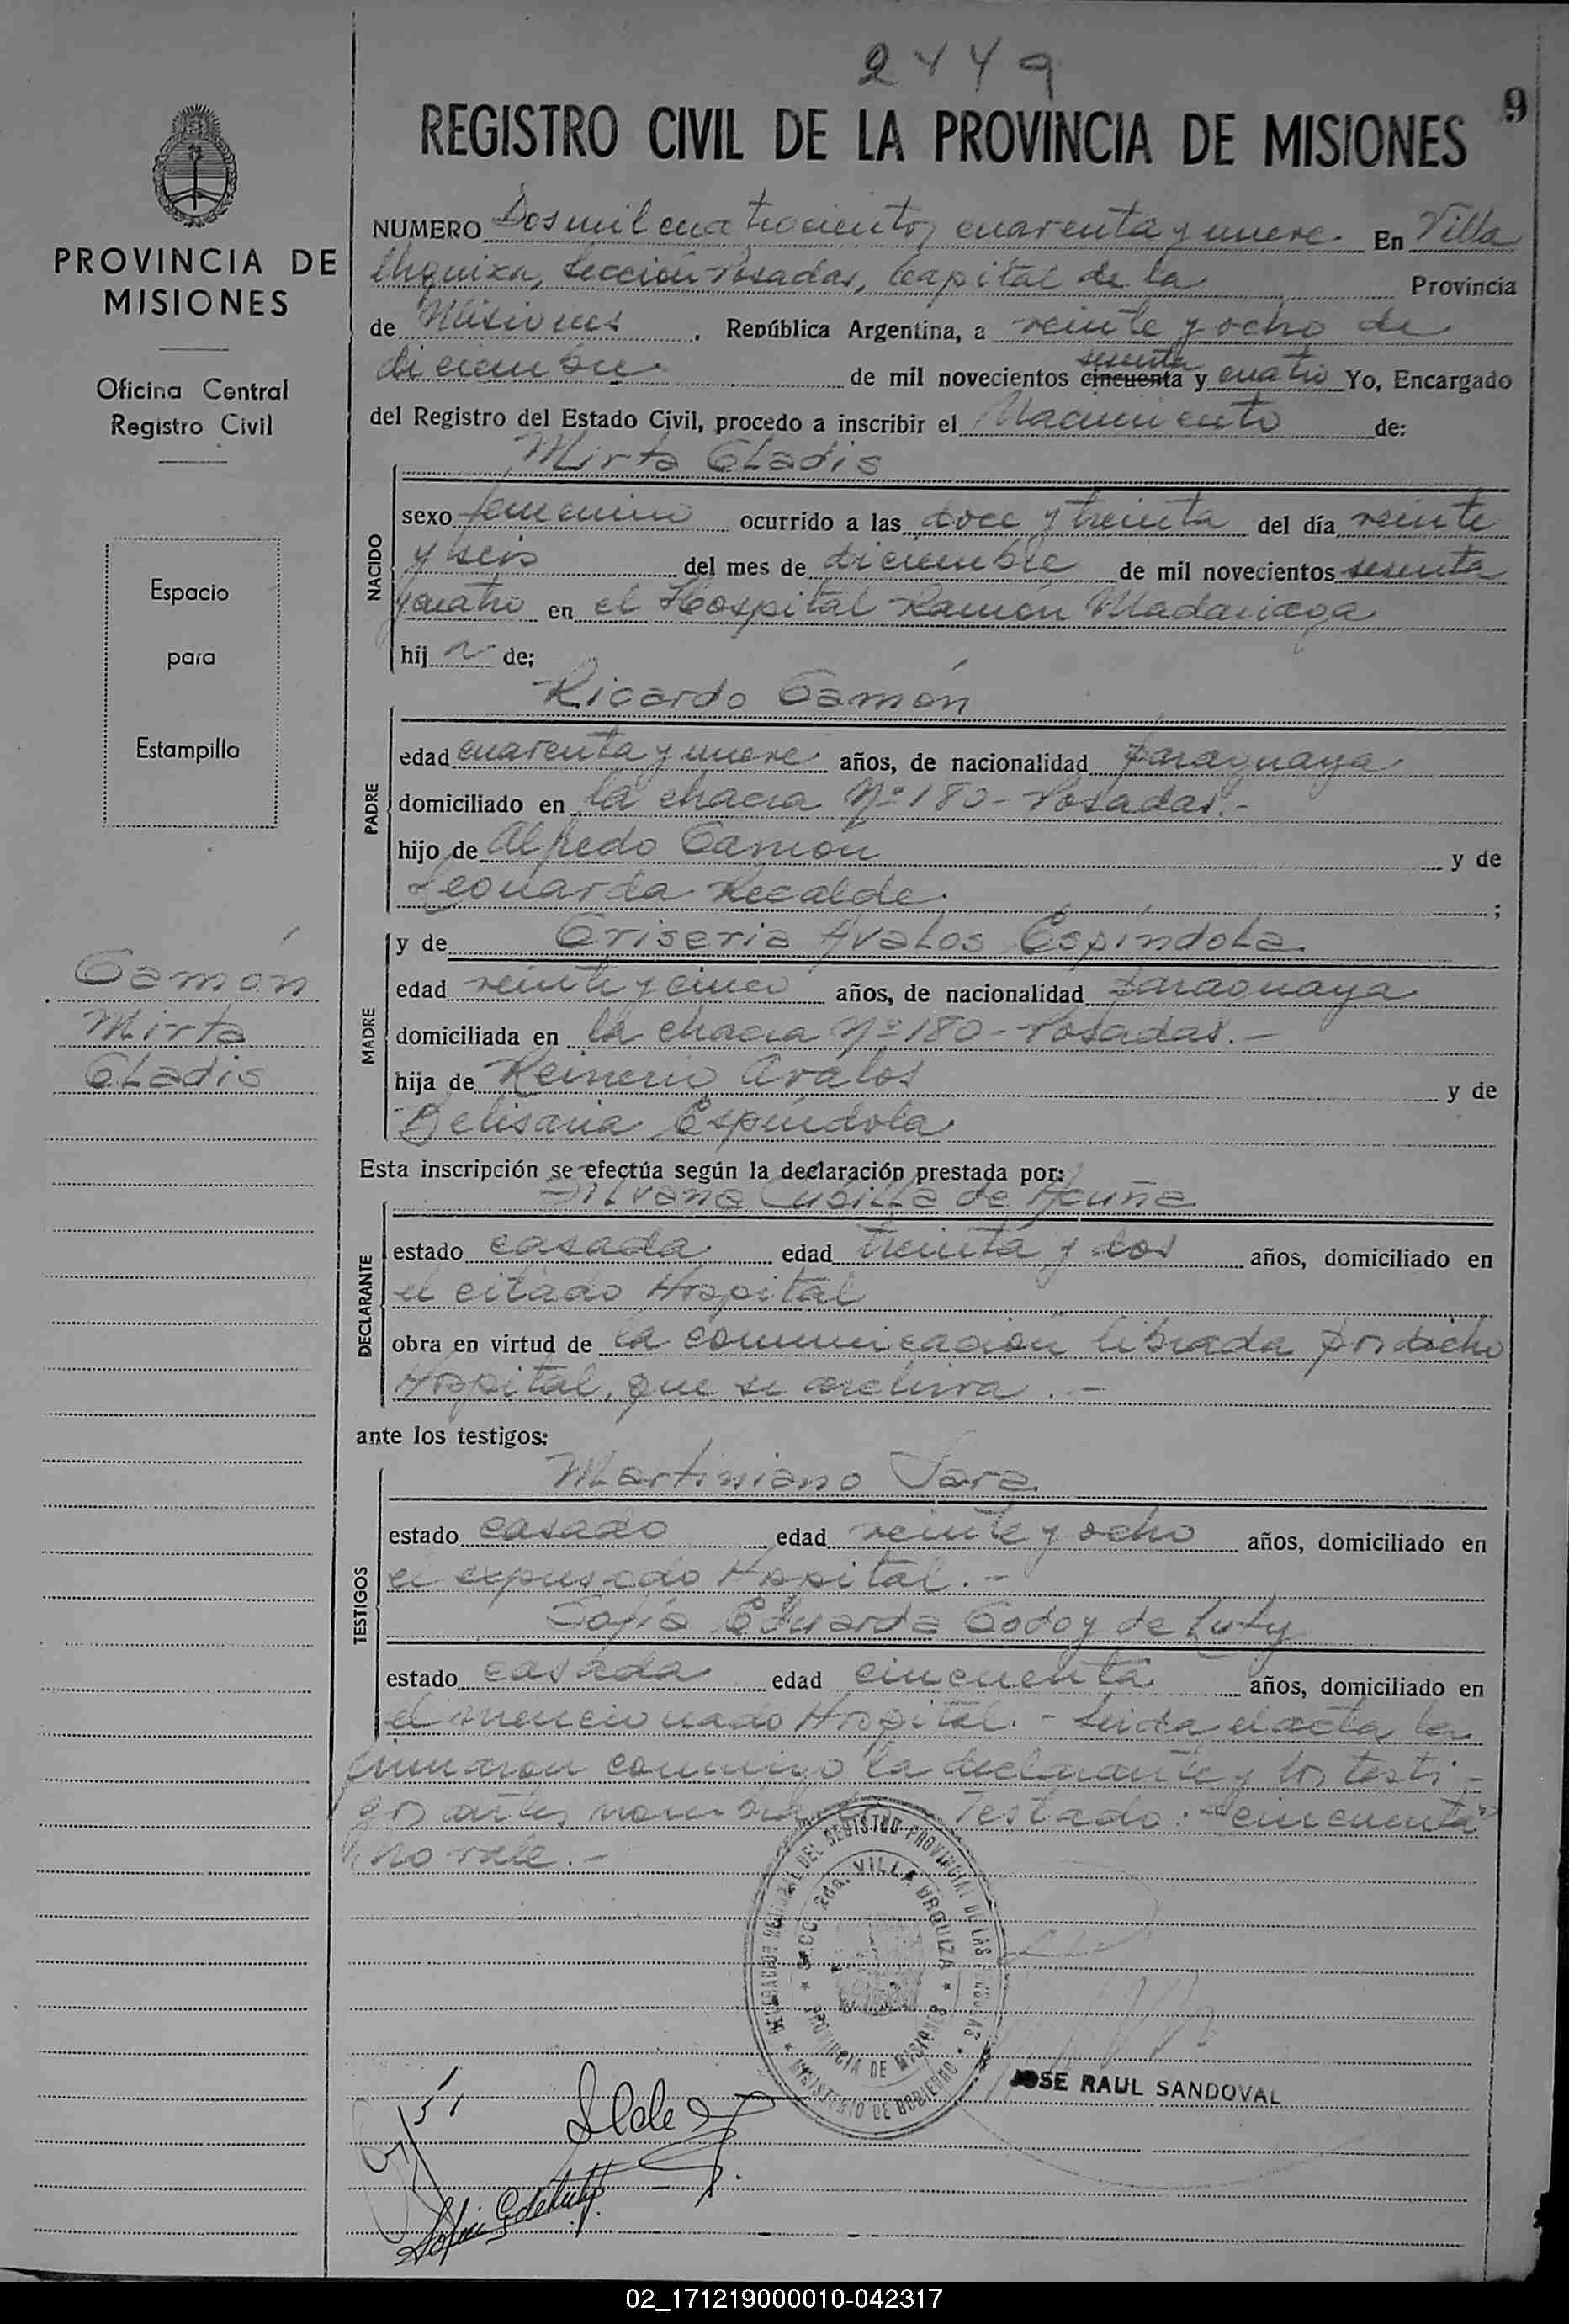 2449
9
REGISTRO CIVIL DE LA PROVINCIA DE MISIONES
PROVINCIA DE
MISIONES
Oficina Central
Registro Civil
Espacio
para
Estampilla
Gamón
Mirta
Gladis
NUMERO Dos mil cuatrocientos cuarenta y nueve. En Villa
Urquiza, Sección Posadas, Capital de la Provincia
de Misiones, República Argentina, a veinte y ocho de
sesenta
diciembre de mil novecientos cincuenta y cuatro Yo, Encargado
del Registro del Estado Civil, procedo a inscribir el Nacimiento de:
Mirta Gladis
NACIDO
sexo femenino ocurrido a las doce y treinta del día veinte
y seis del mes de diciembre de mil novecientos sesenta
y cuatro en el Hospital Ramón Madariaga
hij de;
Ricardo Gamón
PADRE
edad cuarenta y nueve años, de nacionalidad paraguaya
domiciliado en la chacra Nº 180 - Posadas.-
hijo de Alfredo Gamón y de
Leonarda Recalde ;
MADRE
y de Griseria Avalos Espíndola
edad veinte y cinco años, de nacionalidad paraguaya
domiciliada en la chacra Nº 180 - Posadas.-
hija de Reinerio Avalos y de
Belisaria Espíndola
Esta inscripción se efectúa según la declaración prestada por:
Silvana Cubilla de Acuña
DECLARANTE
estado casada edad treinta y dos años, domiciliado en
el citado Hospital
obra en virtud de la comunicación librada por dicho
Hospital, que se archiva.-
ante los testigos:
Martiniano Jara
TESTIGOS
estado casado edad veinte y ocho años, domiciliado en
el expresado Hospital.-
Sofía Eduarda Godoy de Luty
estado casada edad cincuenta años, domiciliado en
el mencionado Hospital.- Leida el acta la
firmaron conmigo la declarante y los testi-
gos antes nombrados. Testado: "cincuenta"
no vale.-
DELEGACION REGIONAL DEL REGISTRO PROVINCIAL DE LAS PERSONAS
MINISTERIO DE GOBIERNO
SECC. 2da. VILLA URQUIZA
PROVINCIA DE MISIONES
JOSE RAUL SANDOVAL
Sofia G de Luty
02_171219000010-042317